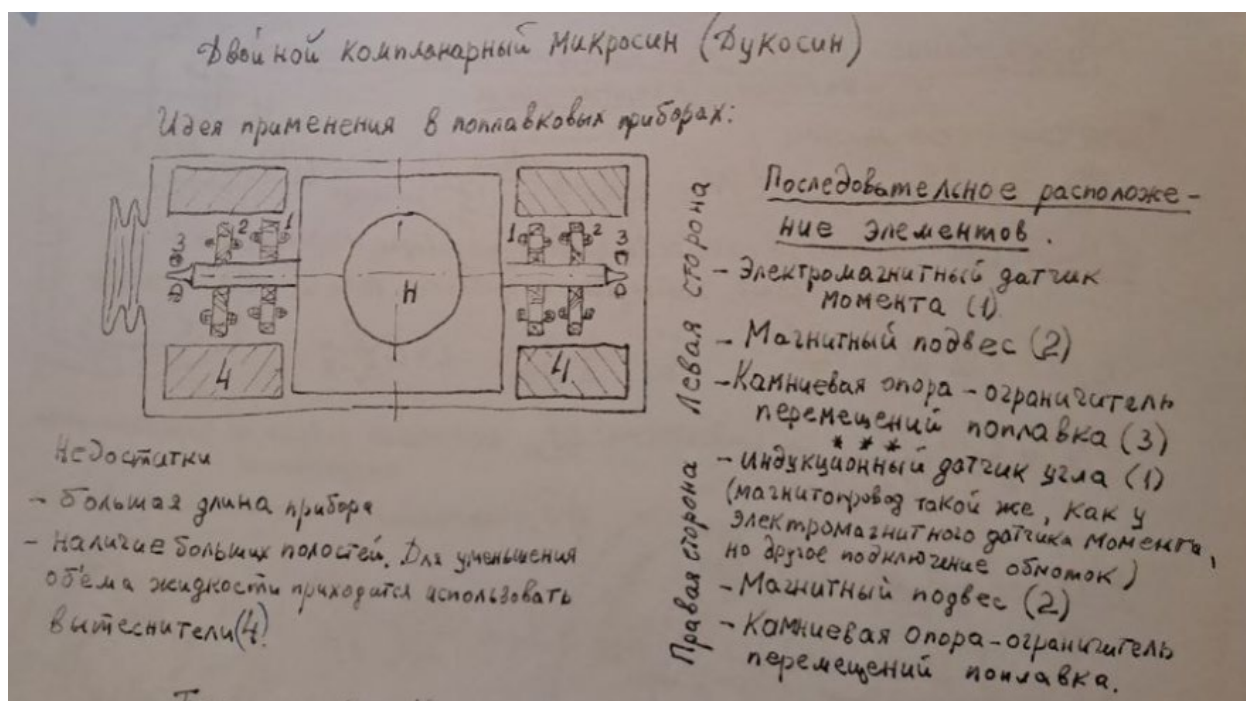 Двойной компланарный микросин (Дукосин)
Идея применения в поплавковых приборах:
3 2 1
1 2 3
H
4 4
Недостатки
- большая длина прибора
- наличие больших полостей. Для уменьшения
объема жидкости приходится использовать
вытеснители(4)
Последовательное расположе-
ение элементов.
Левая сторона
- Электромагнитный датчик
момента (1)
- Магнитный подвес (2)
- Камниевая опора - ограничитель
перемещений поплавка (3)
* * *
Правая сторона
- индукционный датчик угла (1)
(магнитопровод такой же, как у
электромагнитного датчика момента,
но другое подключение обмоток)
- Магнитный подвес (2)
- Камниевая опора-ограничитель
перемещений поплавка.